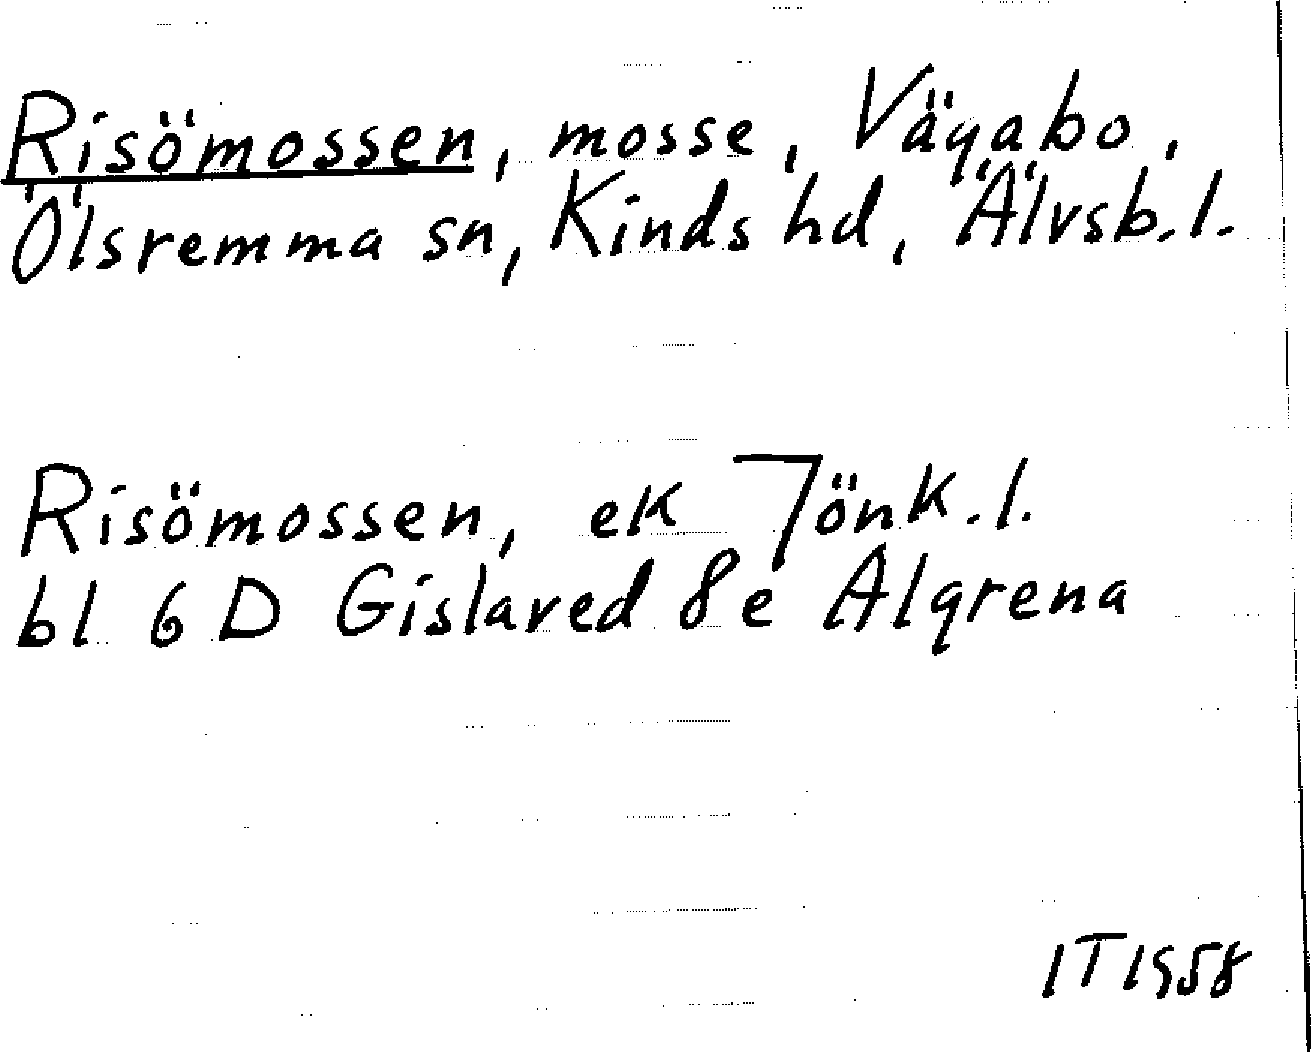 Risömossen, mosse, Vägabo,
Ölsremma sn, Kinds hd, Älvsb.l.
Risömossen, ek Jönk.l.
bl 6 D Gislaved 8e Algrena
IT1958